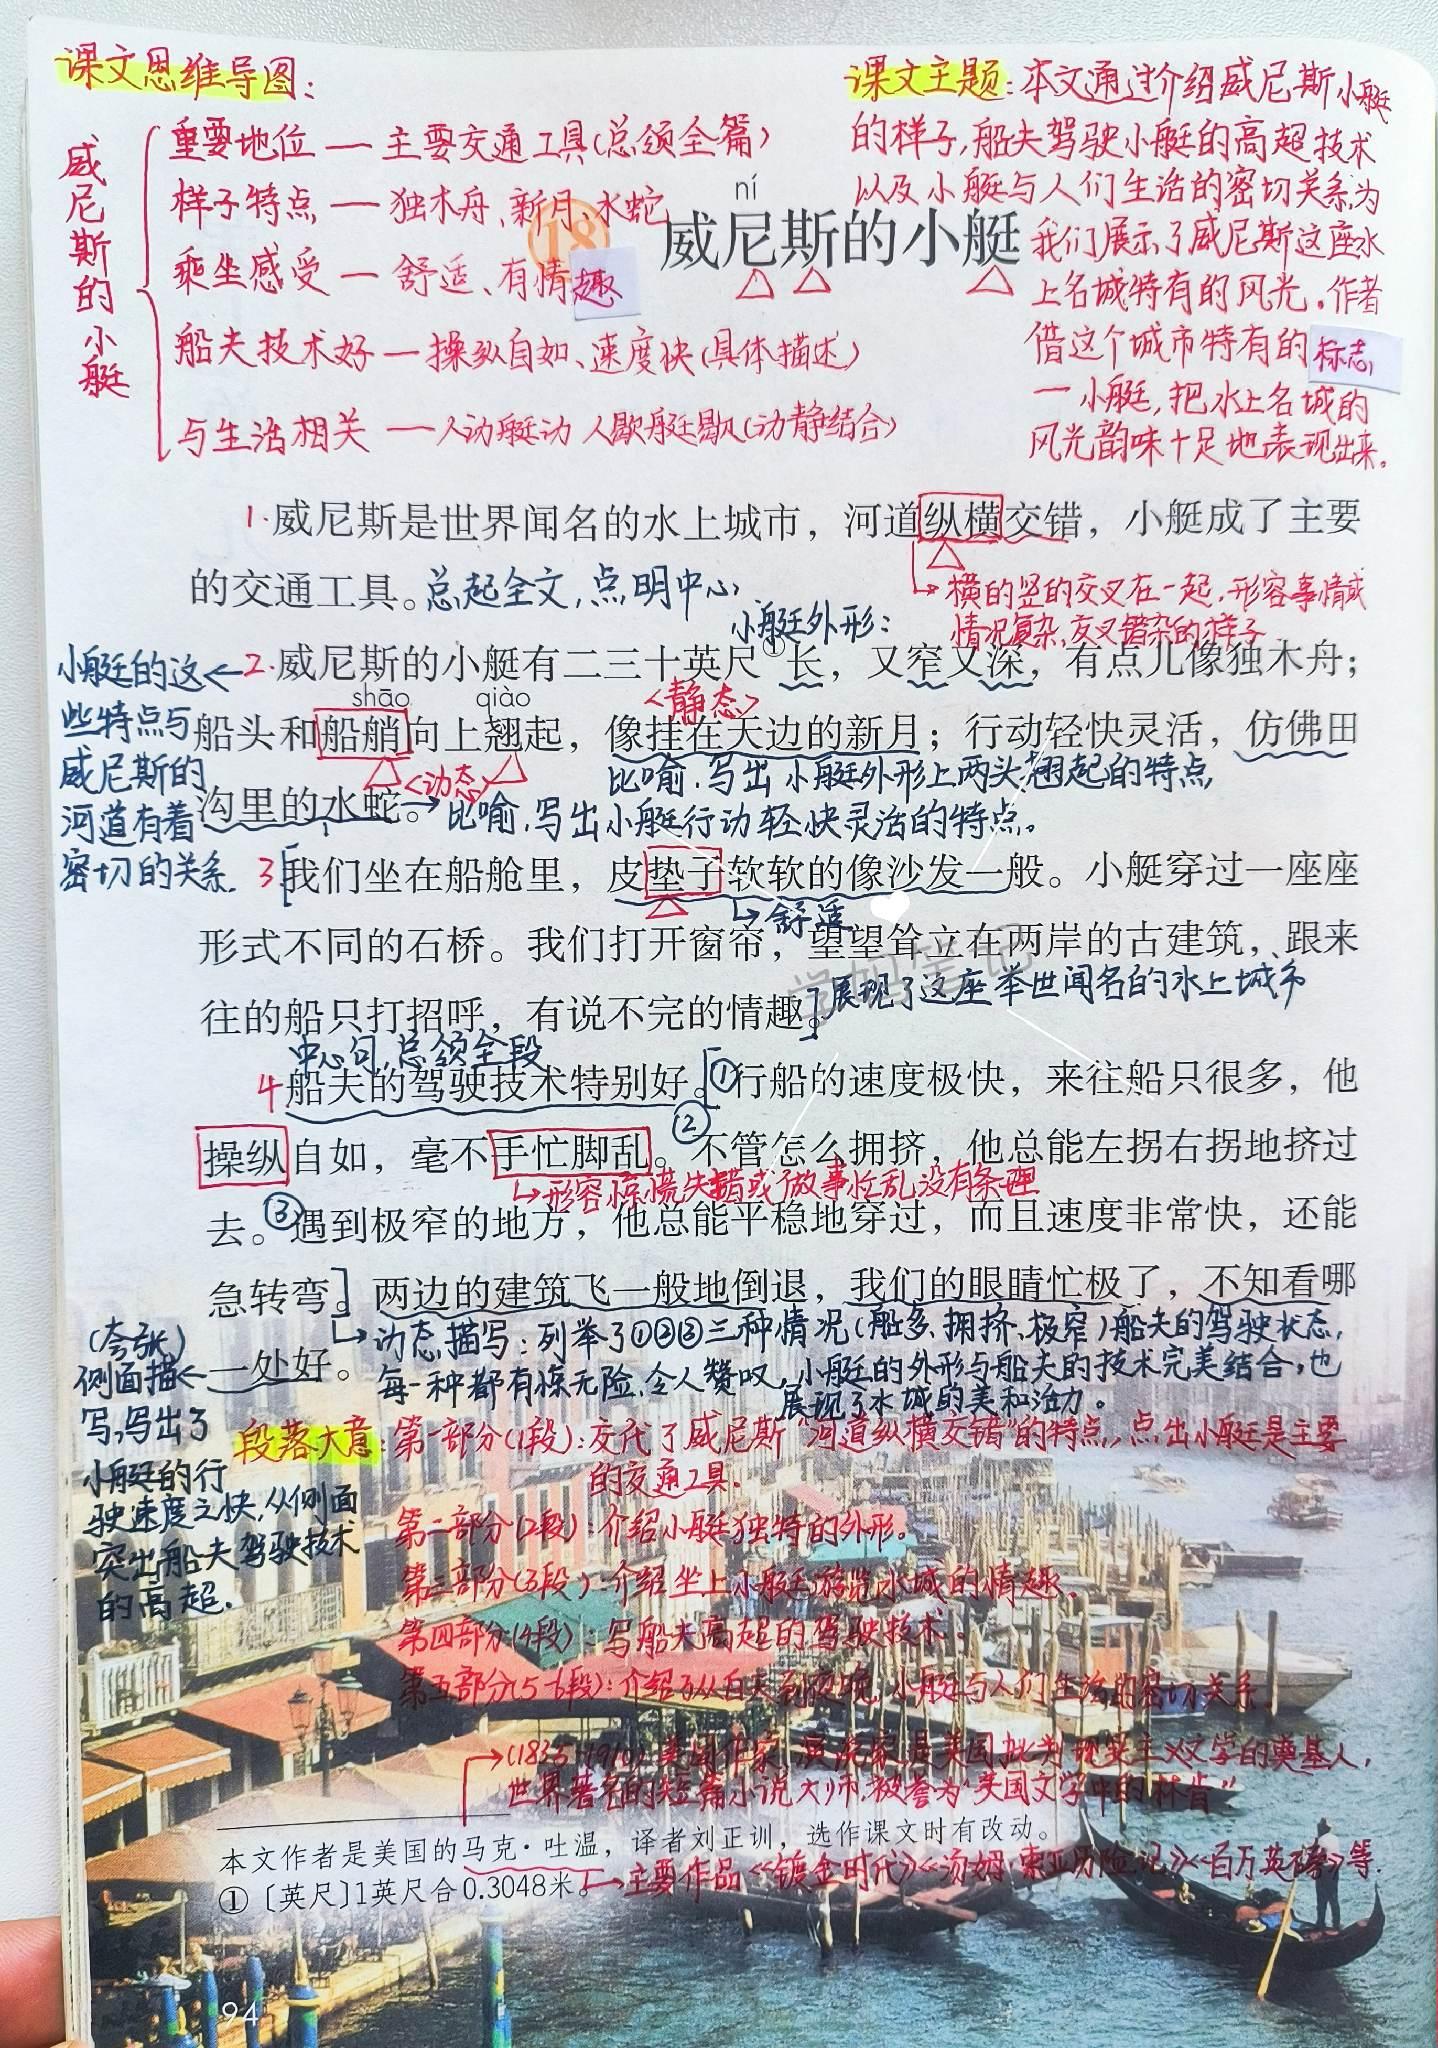 课文思维导图：
威尼斯的小艇
重要地位 — 主要交通工具(总领全篇)
样子特点 — 独木舟、新月、水蛇
乘坐感受 — 舒适、有情趣
船夫技术好 — 操纵自如、速度快(具体描述)
与生活相关 — 人动艇动 人歇艇歇(动静结合)
课文主题：本文通过介绍威尼斯小艇
的样子，船夫驾驶小艇的高超技术
以及小艇与人们生活的密切关系，为
我们展示了威尼斯这座水
上名城特有的风光。作者
借这个城市特有的标志，
一小艇，把水上名城的
风光韵味十足地表现出来。
ní
18 威尼斯的小艇
1.威尼斯是世界闻名的水上城市，河道纵横交错，小艇成了主要
的交通工具。总起全文，点明中心
横的竖的交叉在一起，形容事情或
情况复杂，交叉错杂的样子
小艇外形：
2.威尼斯的小艇有二三十英尺①长，又窄又深，有点儿像独木舟；
shāo qiào <静态>
船头和船艄向上翘起，像挂在天边的新月；行动轻快灵活，仿佛田
<动态> 比喻，写出小艇外形上两头翘起的特点
沟里的水蛇。比喻，写出小艇行动轻快灵活的特点。
小艇的这
些特点与
威尼斯的
河道有着
密切的关系.
3 我们坐在船舱里，皮垫子软软的像沙发一般。小艇穿过一座座
舒适
形式不同的石桥。我们打开窗帘，望望耸立在两岸的古建筑，跟来
往的船只打招呼，有说不完的情趣。展现了这座举世闻名的水上城市
学姐笔记
中心句，总领全段
4 船夫的驾驶技术特别好。①行船的速度极快，来往船只很多，他
操纵自如，毫不手忙脚乱。②不管怎么拥挤，他总能左拐右拐地挤过
形容惊慌失措或做事忙乱没有条理
去。③遇到极窄的地方，他总能平稳地穿过，而且速度非常快，还能
急转弯。两边的建筑飞一般地倒退，我们的眼睛忙极了，不知看哪
一处好。
动态描写：列举了①②③三种情况(船多、拥挤、极窄)船夫的驾驶状态，
每一种都有惊无险，令人赞叹，小艇的外形与船夫的技术完美结合，也
展现了水城的美和活力。
(夸张)
侧面描
写，写出了
小艇的行
驶速度之快，从侧面
突出船夫驾驶技术
的高超.
段落大意：第一部分(1段)：交代了威尼斯“河道纵横交错”的特点，点出小艇是主要
的交通工具.
第二部分(2段)：介绍小艇独特的外形。
第三部分(3段)：介绍坐上小艇游览水城的情趣.
第四部分(4段)：写船夫高超的驾驶技术.
第五部分(5-6段)：介绍了从白天到夜晚，小艇与人们生活的密切关系.
(1835-1910)美国作家、演说家，是美国批判现实主义文学的奠基人，
世界著名的短篇小说大师，被誉为“美国文学中的林肯”
本文作者是美国的马克·吐温，译者刘正训，选作课文时有改动。
主要作品《镀金时代》《汤姆·索亚历险记》《百万英镑》等.
①〔英尺〕1英尺合0.3048米。
94